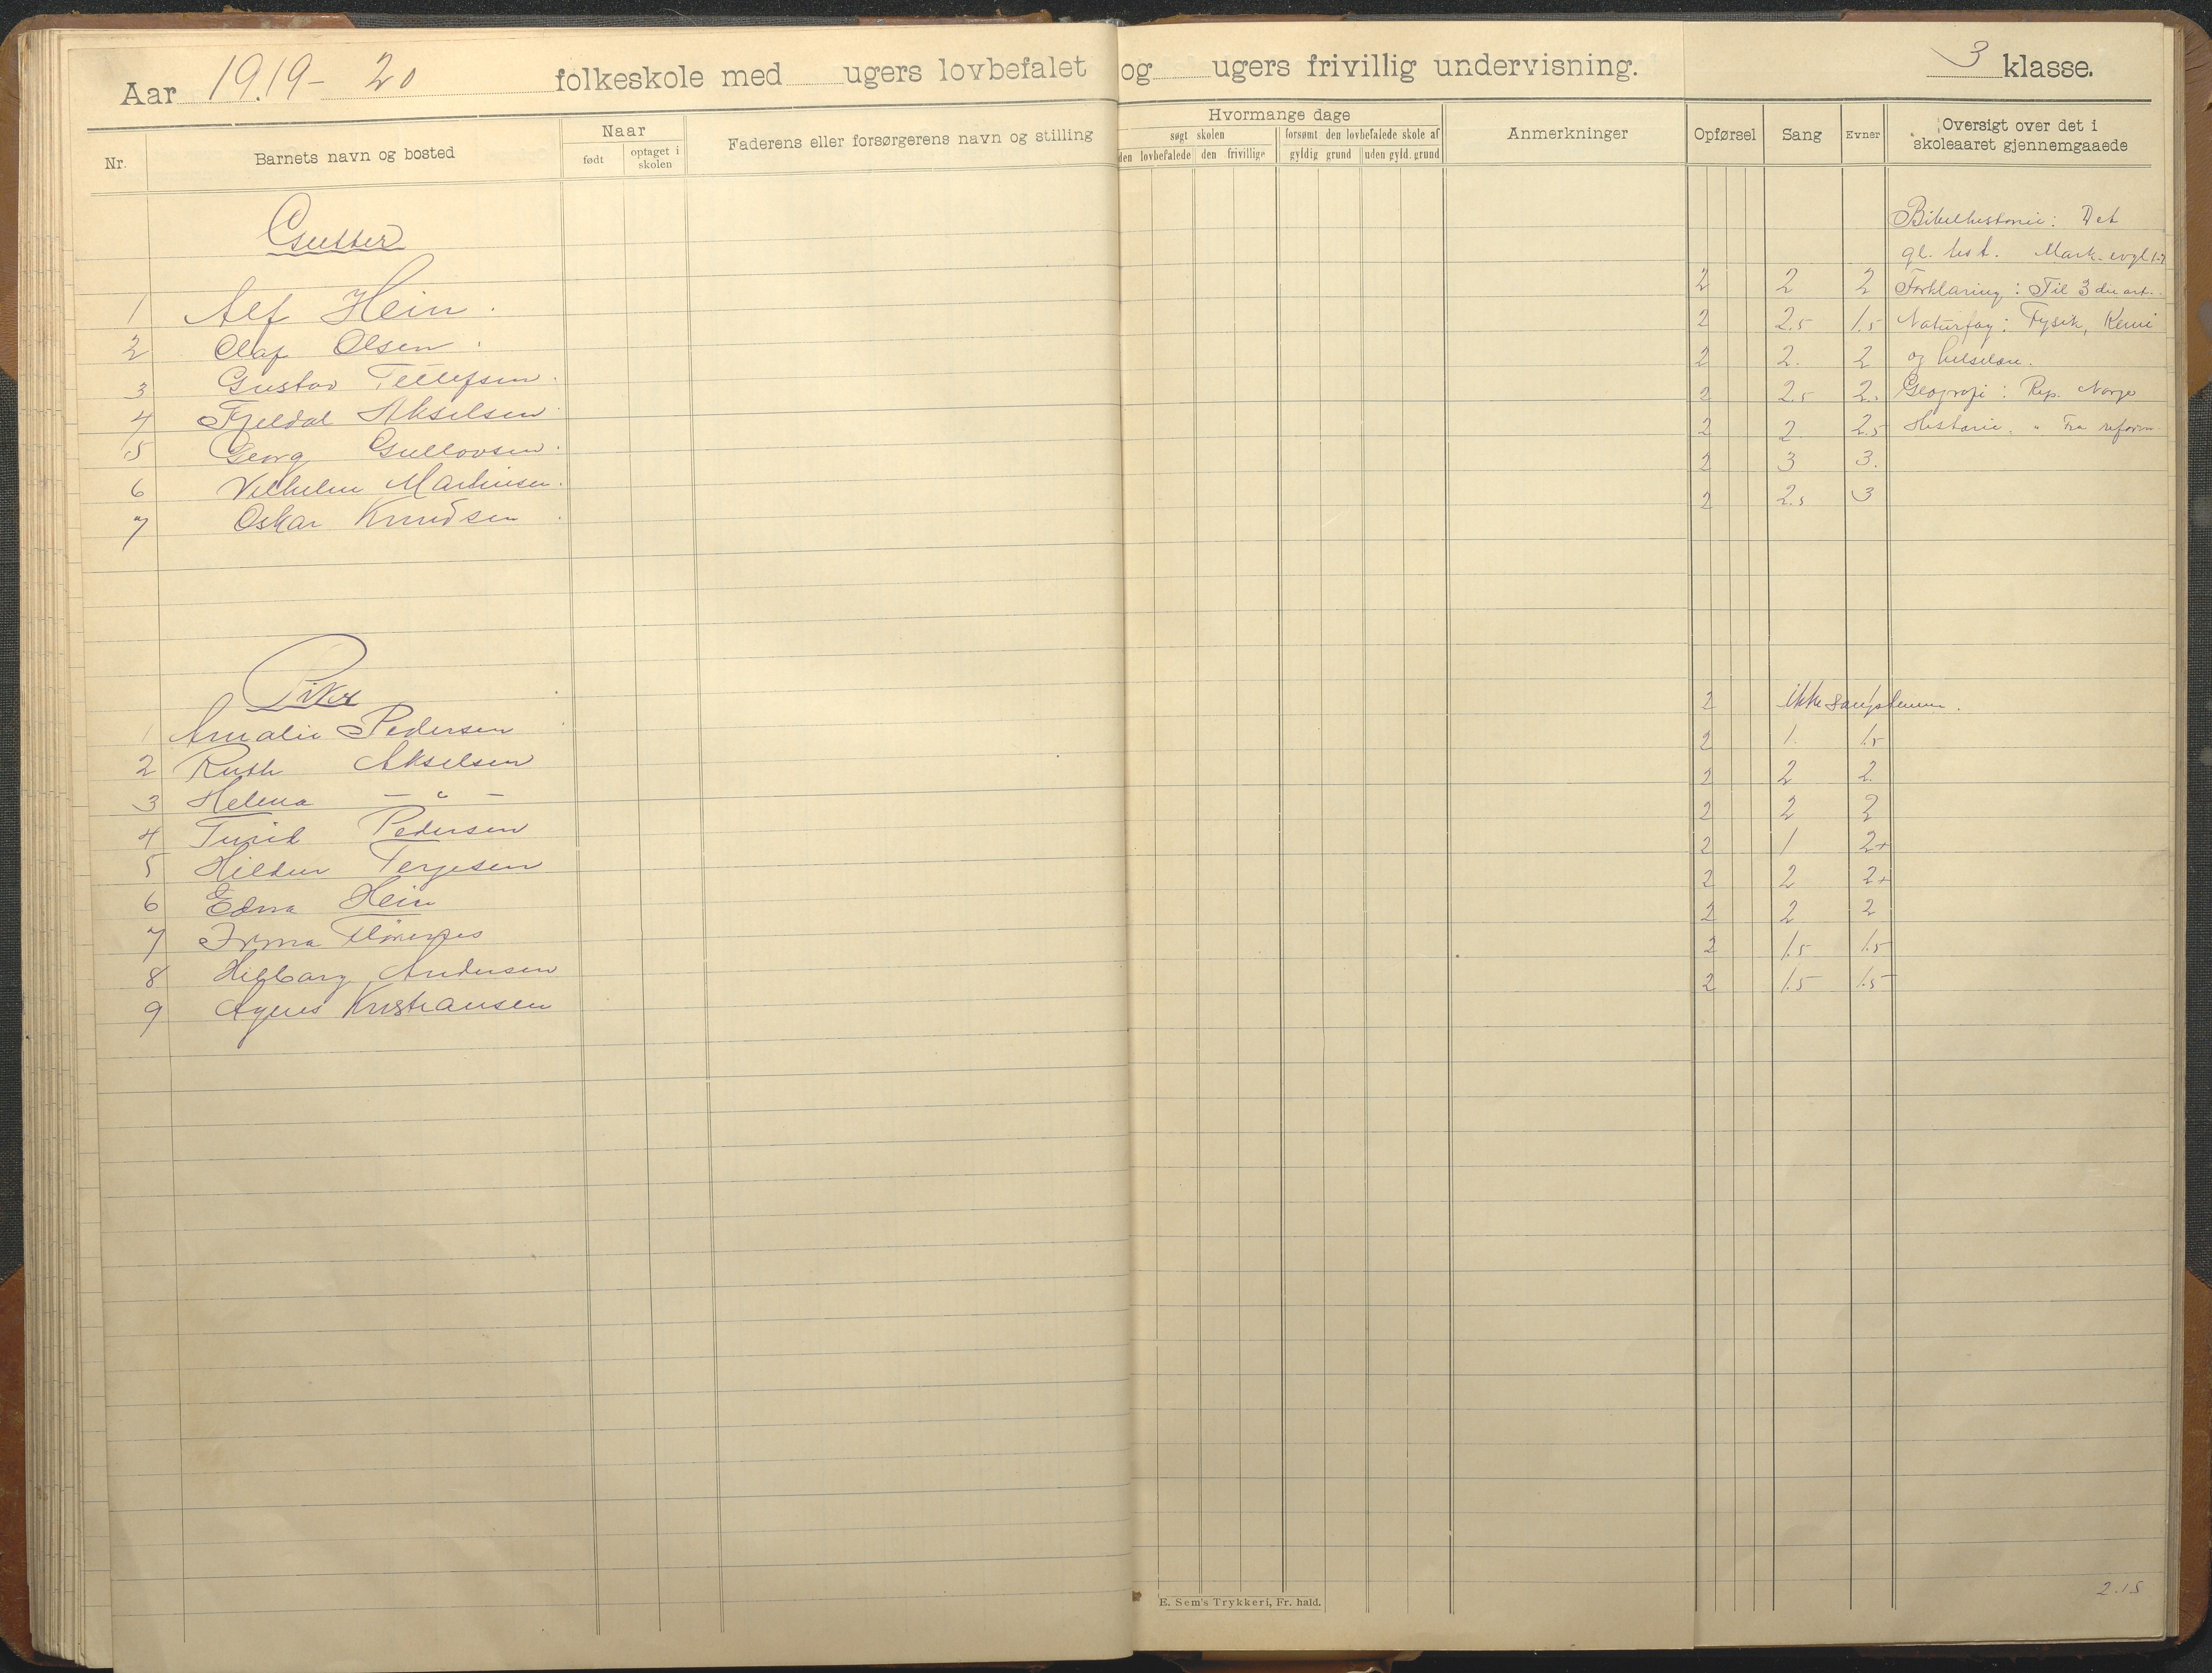 Aar 1919-20 folkeskole med ugers lovbefalet og ugers frivillig undervisning. 3 klasse.
Nr. Barnets navn og bosted Naar født optaget i skolen Faderens eller forsørgerens navn og stilling
Hvormange dage
søgt skolen forsømt den lovbefalede skole af
den lovbefalede den frivillige gyldig grund uden gyld. grund
Anmerkninger Opførsel Sang Evner Oversigt over det i skoleaaret gjennemgaaede
Gutter
1 Alf Hein. 2 2 2
2 Olaf Olsen. 2 2.5 1.5
3 Gustav Tellefsen. 2 2. 2
4 Fjeldal Akselsen 2 2.5 2.
5 Georg Gullovsen. 2 2 2.5
6 Vilhelm Martinsen. 2 3 3.
7 Oskar Knudsen. 2 2.5 3
Bibelhistorie: Det
gl. test. Mark. evgl 1-7
Forklaring: Til 3die art.
Naturfag: Fysik, Kemi
og helselære.
Geografi: Rep. Norge
Historie. " Fra reform.
Piker
1 Amalie Pedersen 2 ikke sangstemme.
2 Ruth Akselsen 2 1. 1.5
3 Helena - " - 2 2 2.
4 Turid Pedersen 2 2 2
5 Hildur Terjesen 2 1 2+
6 Edna Hein 2 2 2+
7 Irma 2 2 2
8 Andersen 2 1.5 1.5
9 Agnes Kristiansen 2 1.5 1.5
E. Sem's Trykkeri, Fr. hald.
2.15